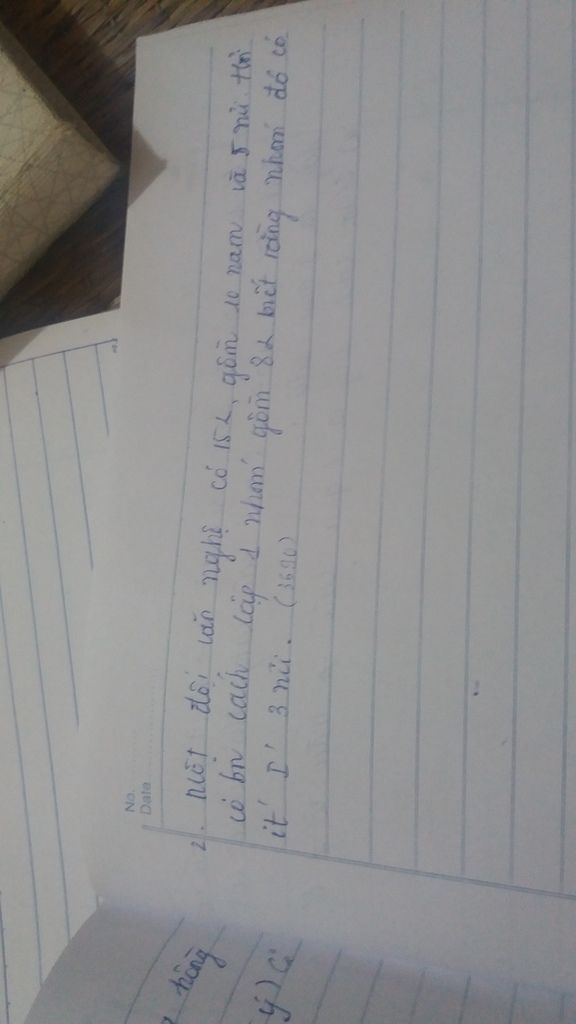 No.
Date
2. Một đội văn nghệ có 15 , gồm 10 nam và 5 nữ. Hỏi
có bn cách lập 1 nhóm gồm 8 biết rằng nhóm đó có
ít I' 3 nữ. (3690)
hồng
ý) Có